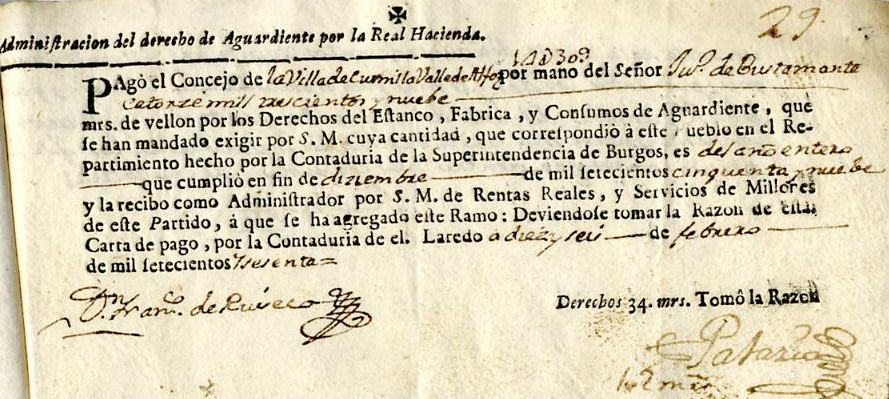 29.
Administracion del derecho de Aguardiente por la Real Hacienda.
14U309
PAgò el Concejo de la Villa de Valle de por mano del Señor Juº. de Bustamante
Catorze mill trescientos y nuebe
mrs. de vellon por los Derechos del Estanco, Fabrica, y Consumos de Aguardiente, que
se han mandado exigir por S. M. cuya cantidad, que correspondiò à este Pueblo en el Re-
partimiento hecho por la Contaduria de la Superintendencia de Burgos, es del año entero
que cumpliò en fin de diziembre de mil setecientos cinquenta y nuebe
y la recibo como Administrador por S. M. de Rentas Reales, y Servicios de Millones
de este Partido, à que se ha agregado este Ramo: Deviendose tomar la Razon de esta
Carta de pago, por la Contaduria de el. Laredo a diez y seis de febrero
de mil setecientos y sesenta =
Dn. Franco. de
Derechos 34. mrs. Tomô la Razon